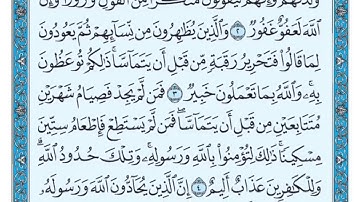 اللَّهَ لَعَفُوٌّ غَفُورٌ ٢ وَالَّذِينَ يُظَاهِرُونَ مِن نِّسَائِهِمْ ثُمَّ يَعُودُونَ
لِمَا قَالُوا فَتَحْرِيرُ رَقَبَةٍ مِّن قَبْلِ أَن يَتَمَاسَّا ذَٰلِكُمْ تُوعَظُونَ
بِهِ وَاللَّهُ بِمَا تَعْمَلُونَ خَبِيرٌ ٣ فَمَن لَّمْ يَجِدْ فَصِيَامُ شَهْرَيْنِ
مُتَتَابِعَيْنِ مِن قَبْلِ أَن يَتَمَاسَّا فَمَن لَّمْ يَسْتَطِعْ فَإِطْعَامُ سِتِّينَ
مِسْكِينًا ذَٰلِكَ لِتُؤْمِنُوا بِاللَّهِ وَرَسُولِهِ وَتِلْكَ حُدُودُ اللَّهِ
وَلِلْكَافِرِينَ عَذَابٌ أَلِيمٌ ٤ إِنَّ الَّذِينَ يُحَادُّونَ اللَّهَ وَرَسُولَهُ